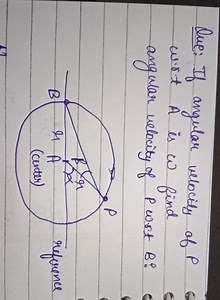 Que:- If angular velocity of P
w.r.t A is ω find
angular velocity of P w.r.t B?
P
r
B
r
A
(center)
reference